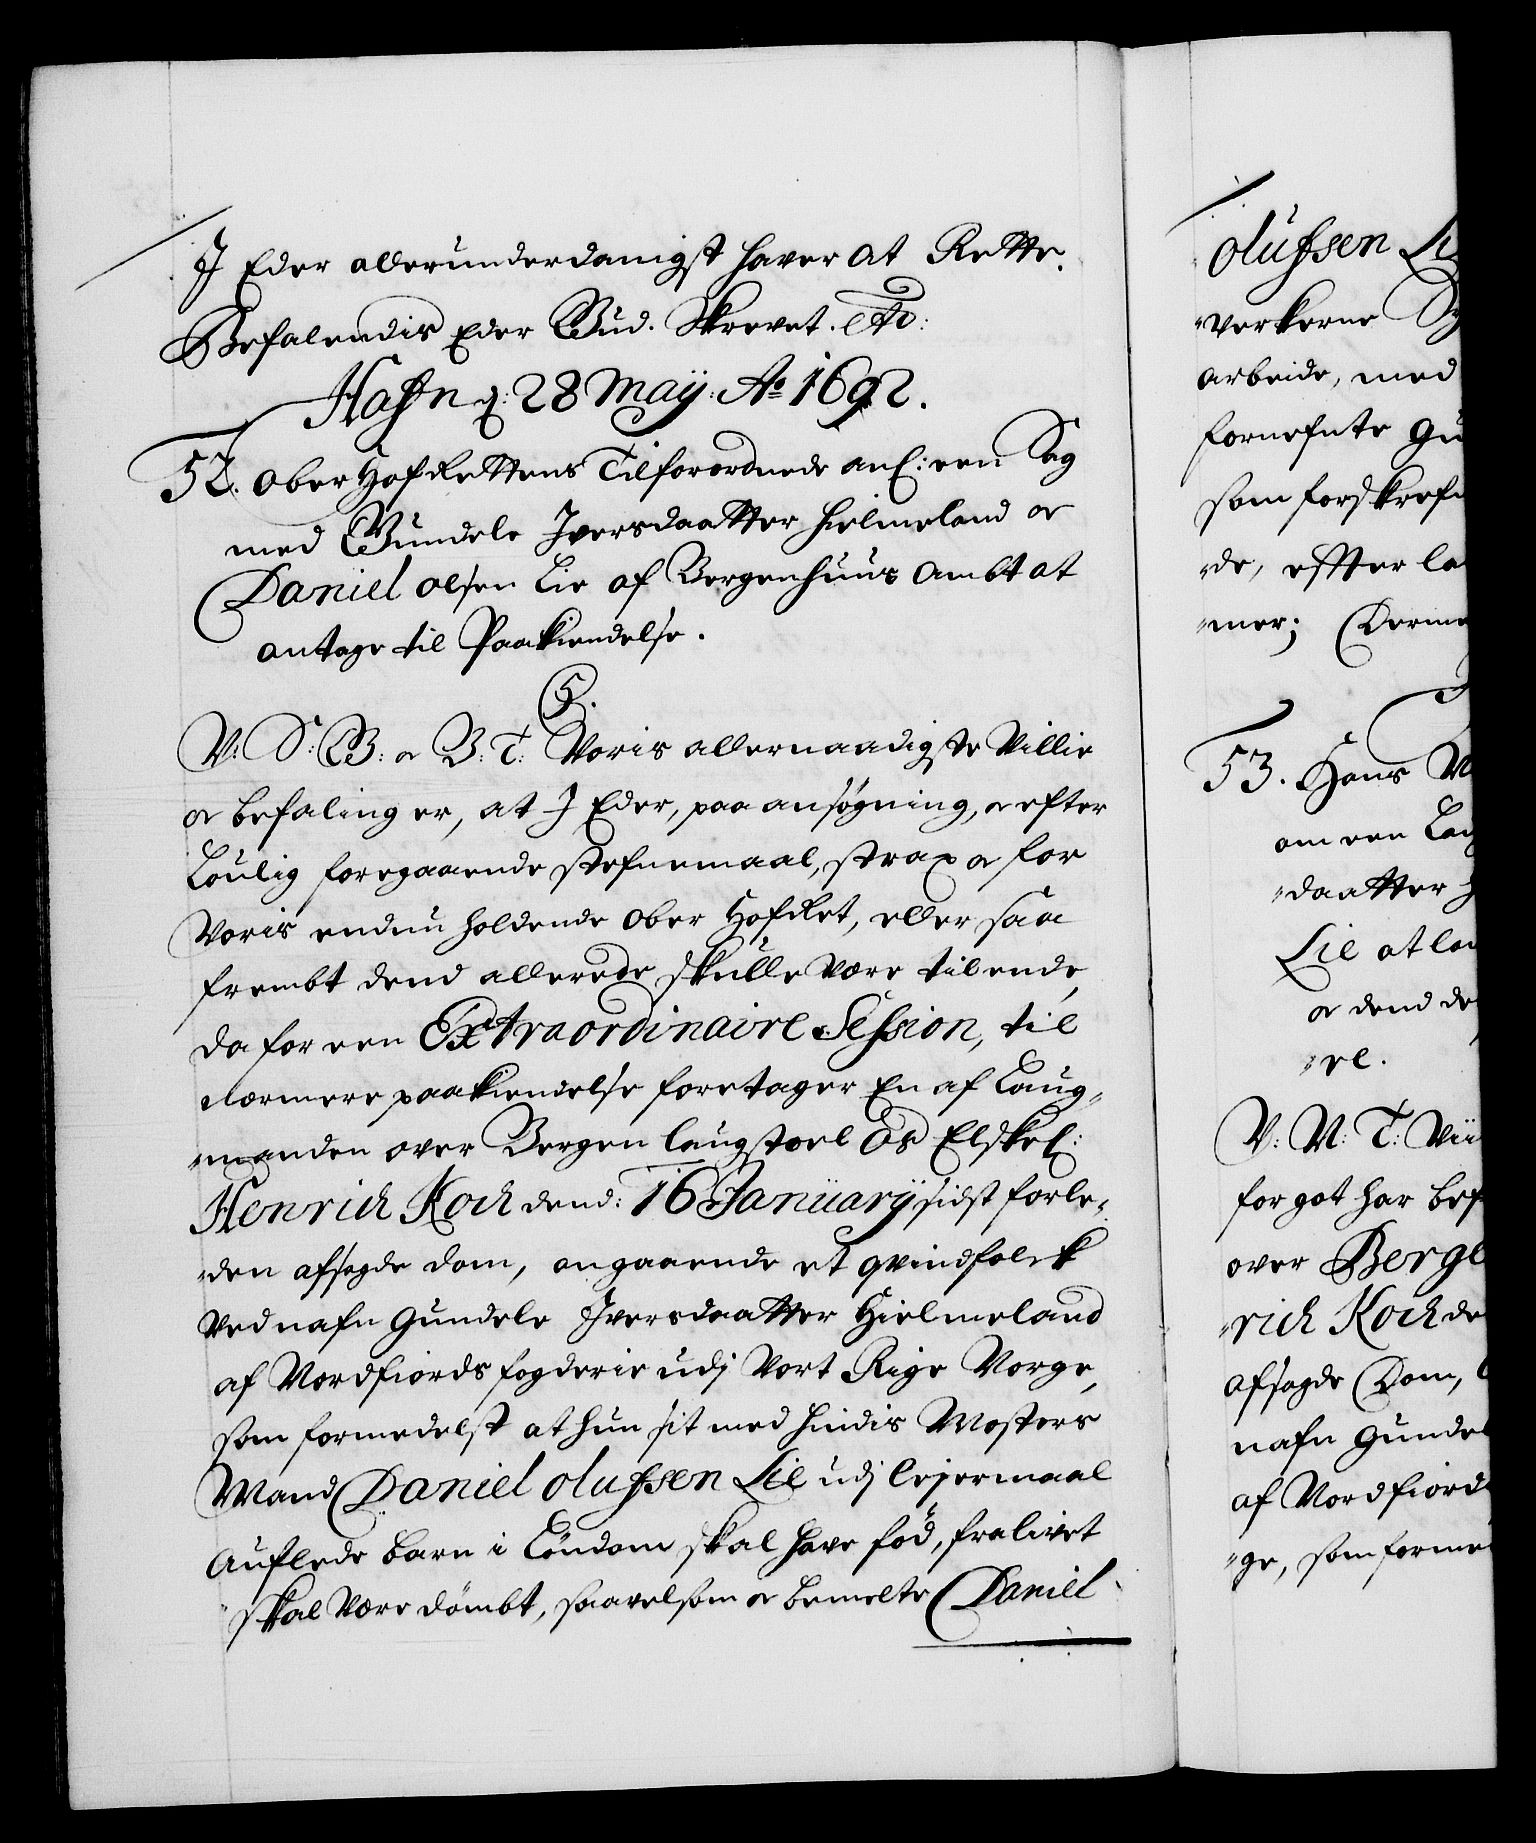 J Eder allerunderdanigst haver at Rette.
Befalendis Eder Gud. Skrevet. etc:
Hafn d: 28 Maÿ: Ao 1692.
52. Ober Hof Rettens Tilforordnede anl: een Sag
med Gundele Iversdaatter Hielmeland oc
Daniel Olsen Lie af Bergenhuus Ambt at
antage til Paakiendelse.
C5.
V: S: G: oc B: T: Voris allernaadigste Villie
oc befaling er, at J Eder, paa ansøgning, oc efter
Loulig foregaaende Stefnemaal, strax oc for
Voris endnu holdende Ober HofRet, eller saa
frembt dend allerede skulle være til ende,
da for een Extraordinaire Session, til
nærmere paakiendelse foretager En af Laug-
manden over Bergen laugstoel Os Elskel:
Henrich Koch dend: 16 Januarÿ sidst forle-
den afsagde dom, angaaende et qvindfolck
ved nafn Gundele Iversdaatter Hielmeland
af Nordfiords fogderie udj Vort Rige Norge,
som formedelst at hun sit med hindis Mosters
Mand Daniel Olufsen Lie udj lejermaal
Auflede barn i Löndom skal have föd, fra livet
skal være dömbt, saavelsom oc bemelte Daniel
Olufsen Li
verkerne
arbeide, med
fornefnte Gu
som forskrefn
de, effter la
mer; Derme
53. Hans
om een Lau
daatter H
Lie at la
oc dend de
re.
V: M: T: Vii
for got har bef
over Berge
rich Koch de
afsagde Dom,
nafn Gundel
af Nordfiord
ge, som forme